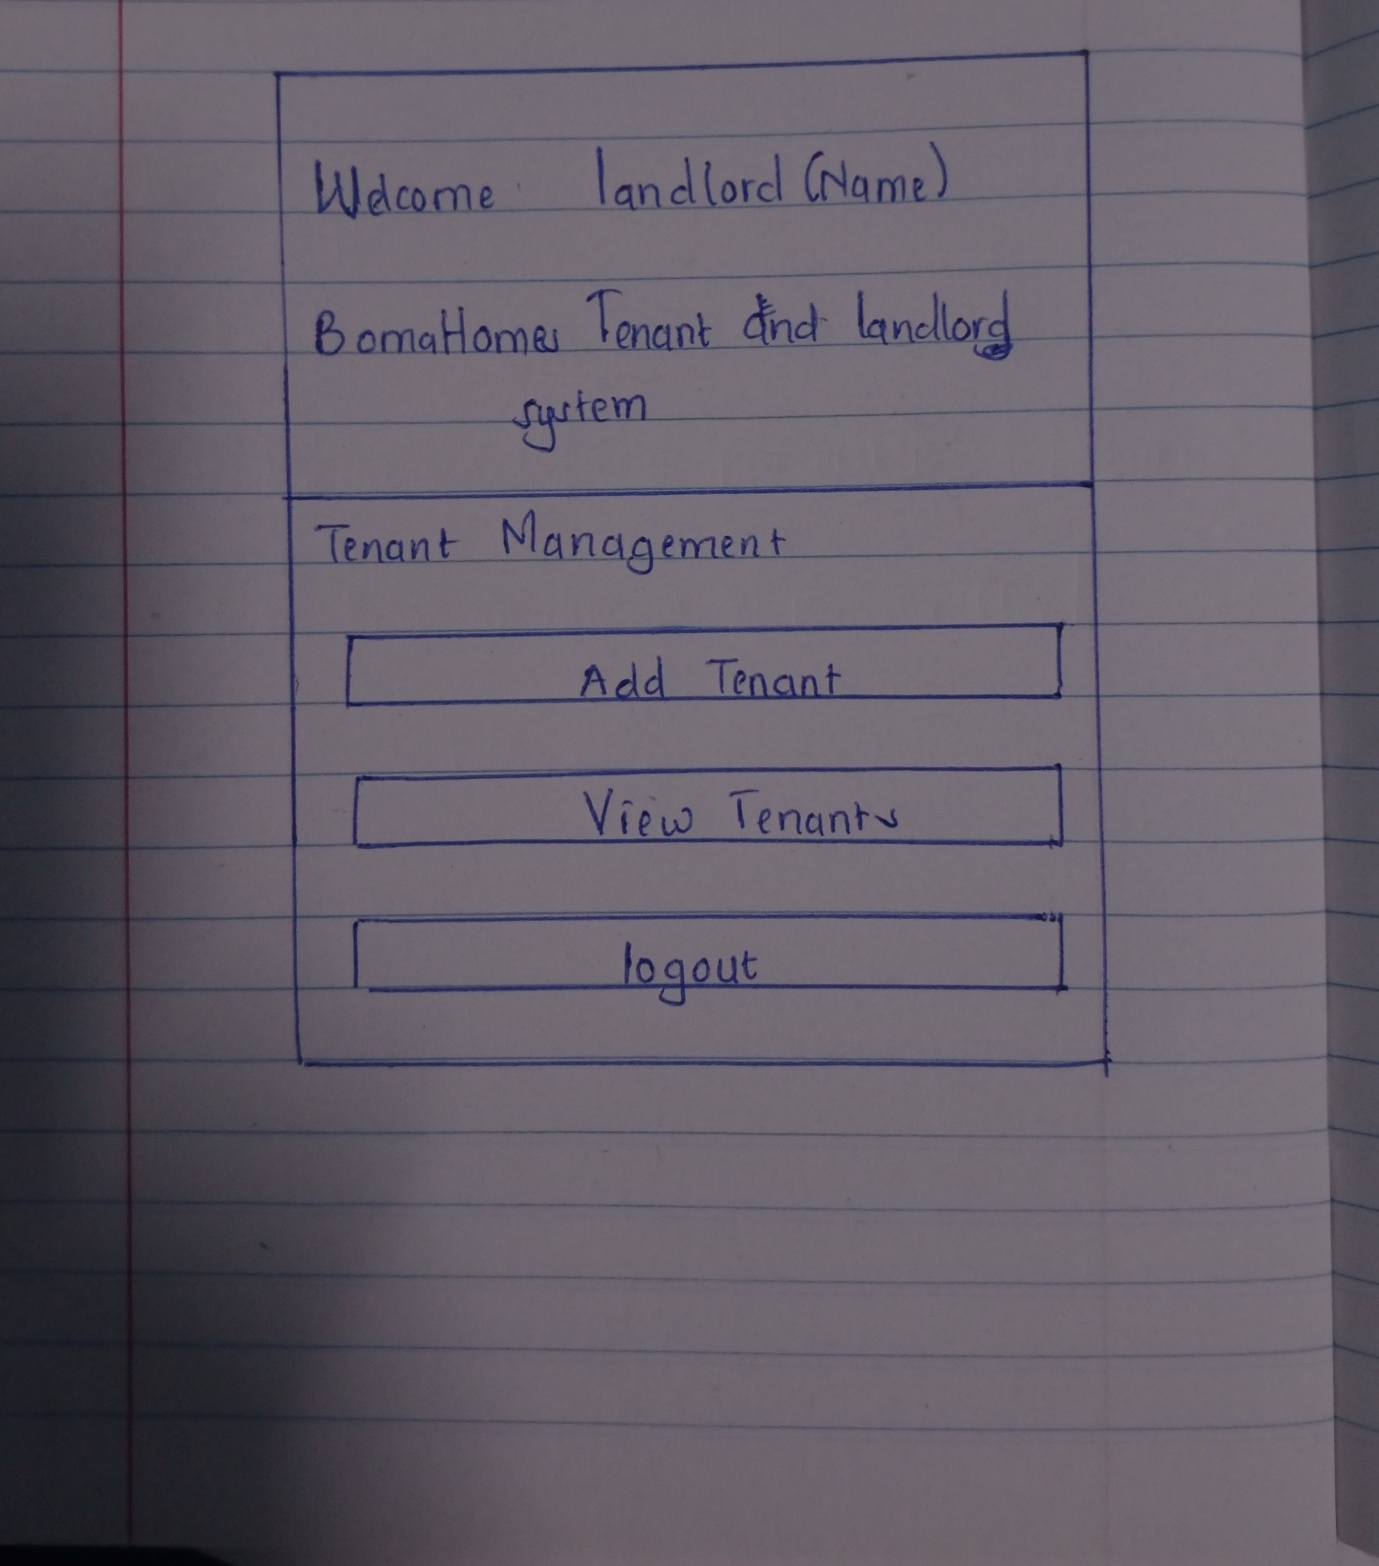 Welcome landlord (Name)
BomaHomes Tenant and landlord
system
Tenant Management
Add Tenant
View Tenants
logout